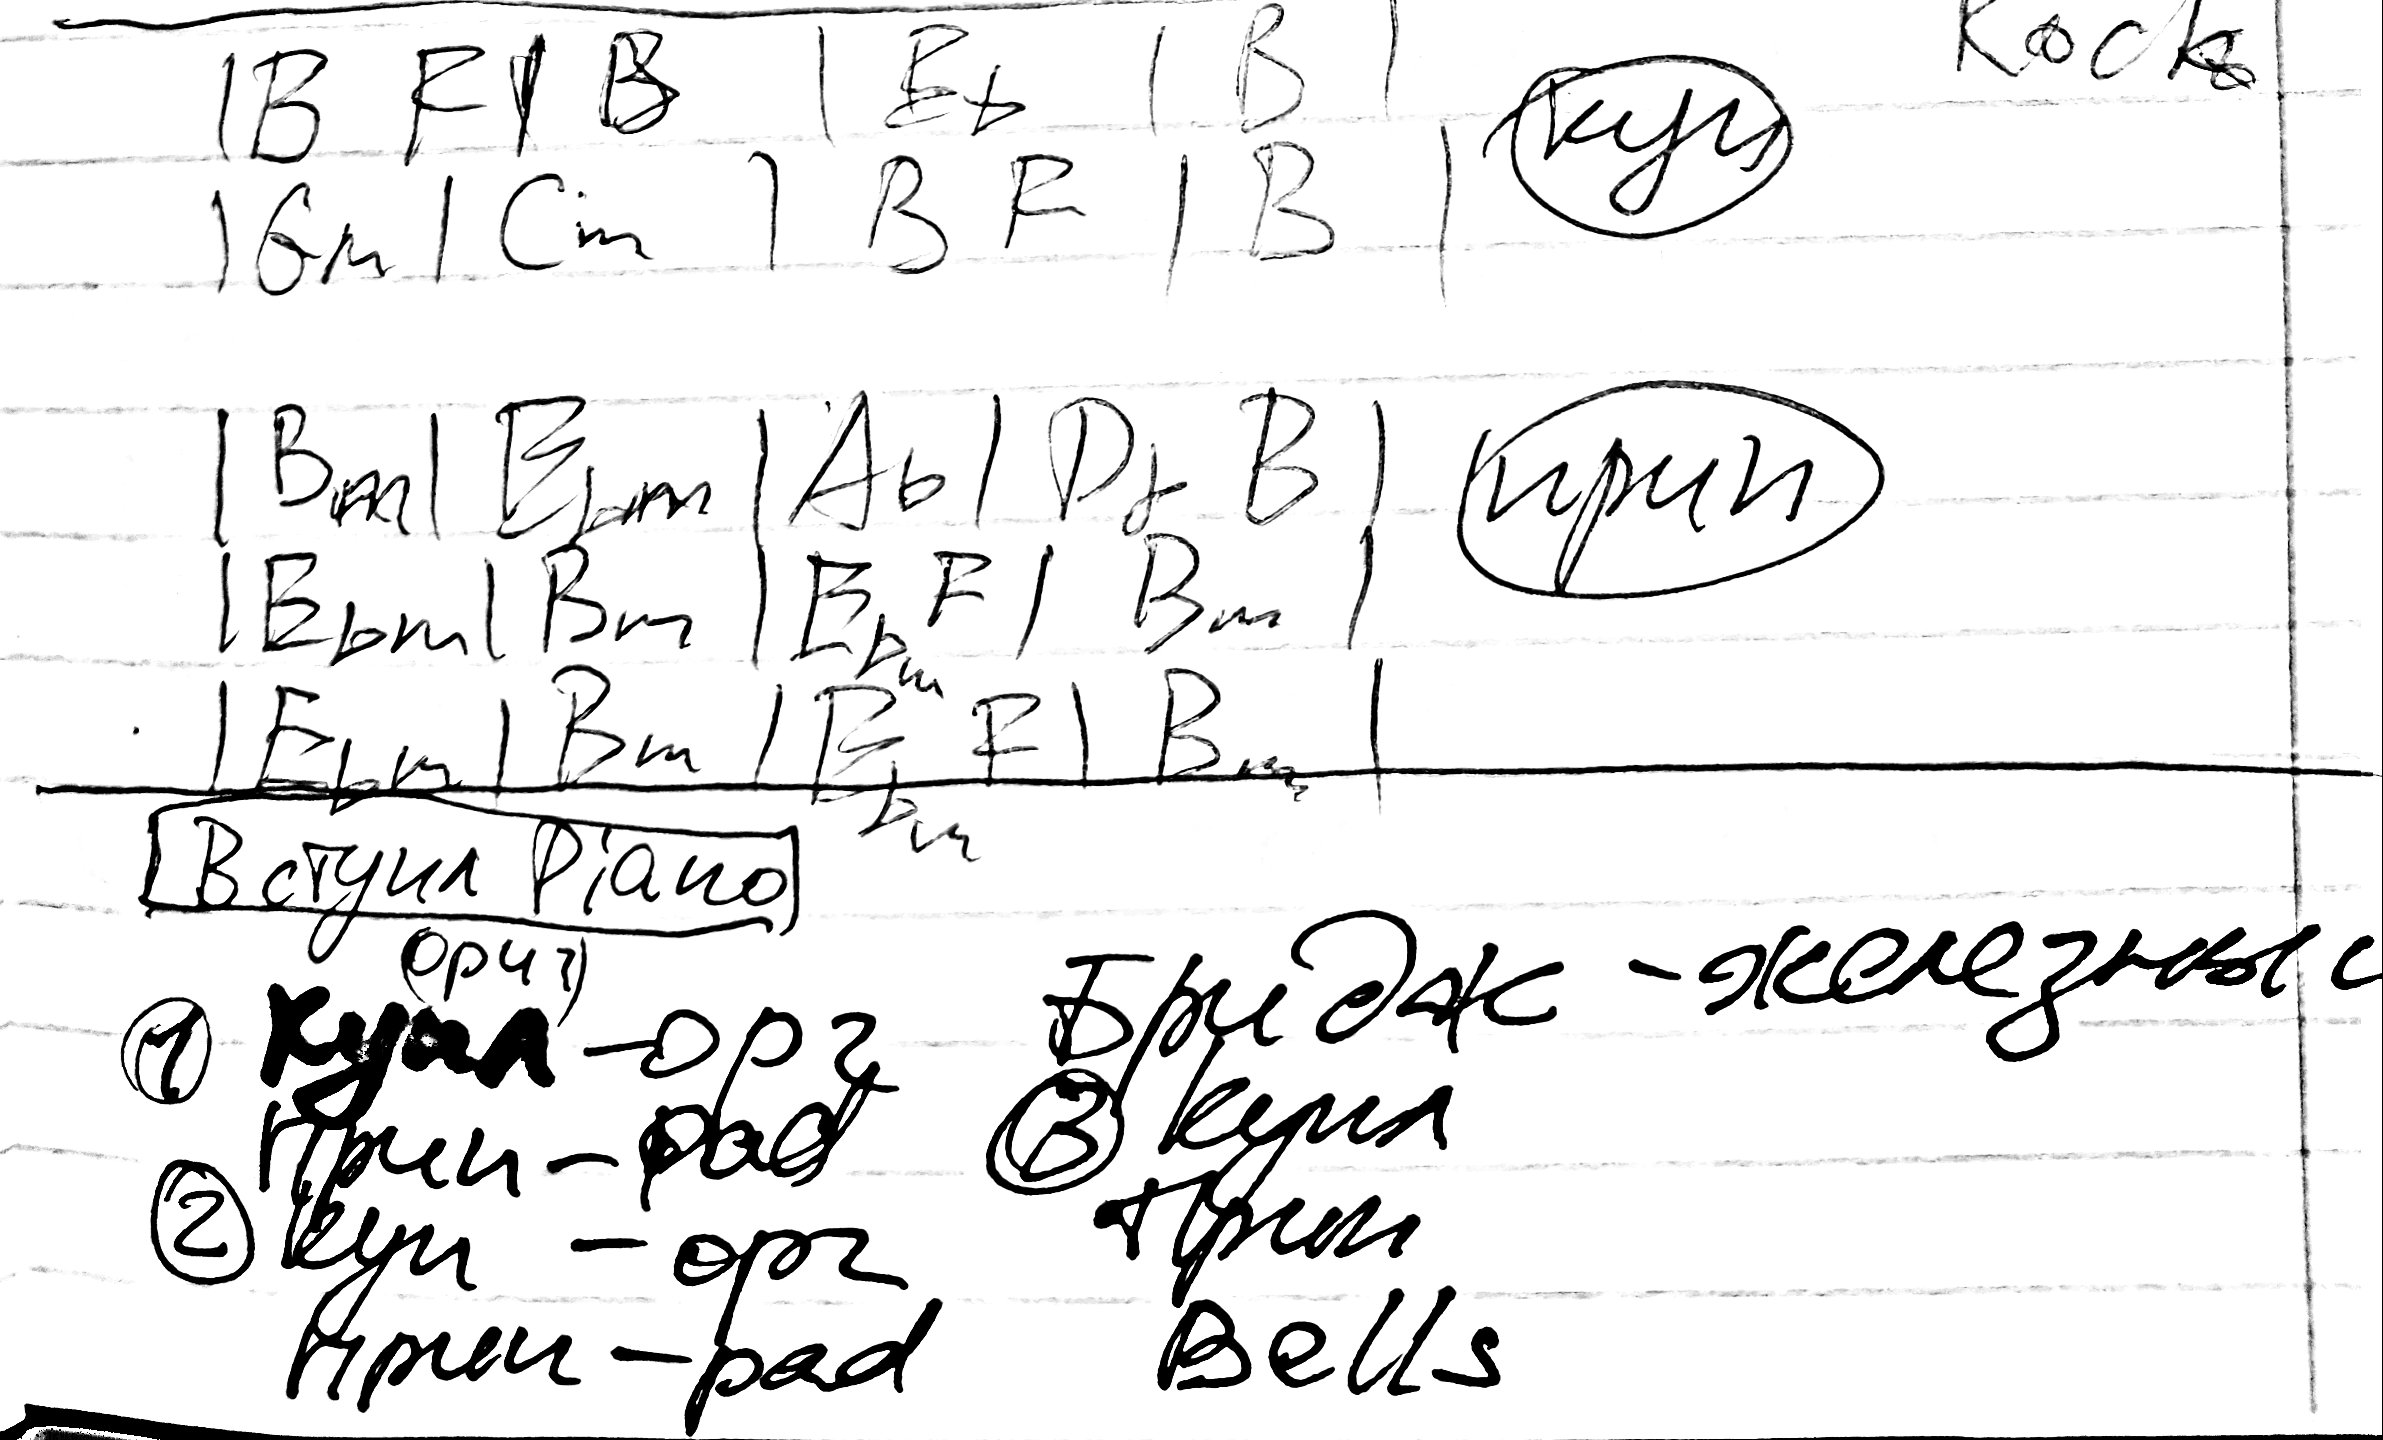 Rocks
|B F| B | Eb | B |
куп
|Gm| Cm | B F | B |
|Bm| Ebm |Ab| Db B |
прип
|Ebm| Bm |Ebm F| Bm |
|Ebm| Bm | Ebm F| Bm |
Вступл Piano
① Купл - орг
Прип - pad
② Куп - орг
Прип - pad
Бридж - железный
③ Купл
Прип
Bells